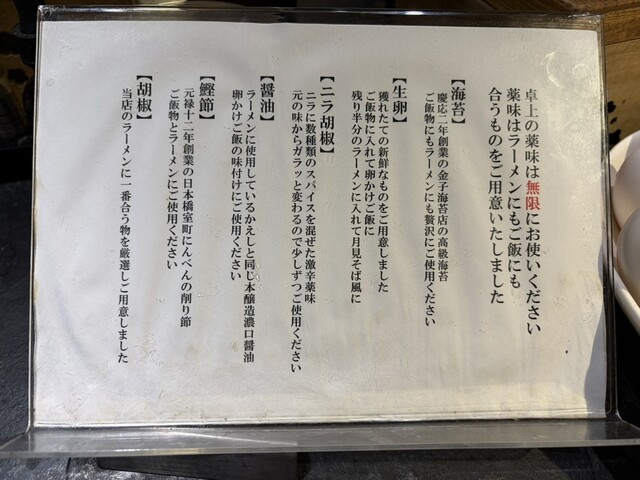 卓上の薬味は無限にお使いください
薬味はラーメンにもご飯にも
合うものをご用意いたしました
【海苔】
慶応二年創業の金子海苔店の高級海苔
ご飯物にもラーメンにも贅沢にご使用ください
【生卵】
獲れたての新鮮なものをご用意しました
ご飯物に入れて卵かけご飯に
残り半分のラーメンに入れて月見そば風に
【ニラ胡椒】
ニラに数種類のスパイスを混ぜた激辛薬味
元の味からガラッと変わるので少しずつご使用ください
【醤油】
ラーメンに使用しているかえしと同じ本醸造濃口醤油
卵かけご飯の味付けにご使用ください
【鰹節】
元禄十二年創業の日本橋室町にんべんの削り節
ご飯物とラーメンにご使用ください
【胡椒】
当店のラーメンに一番合う物を厳選しご用意しました